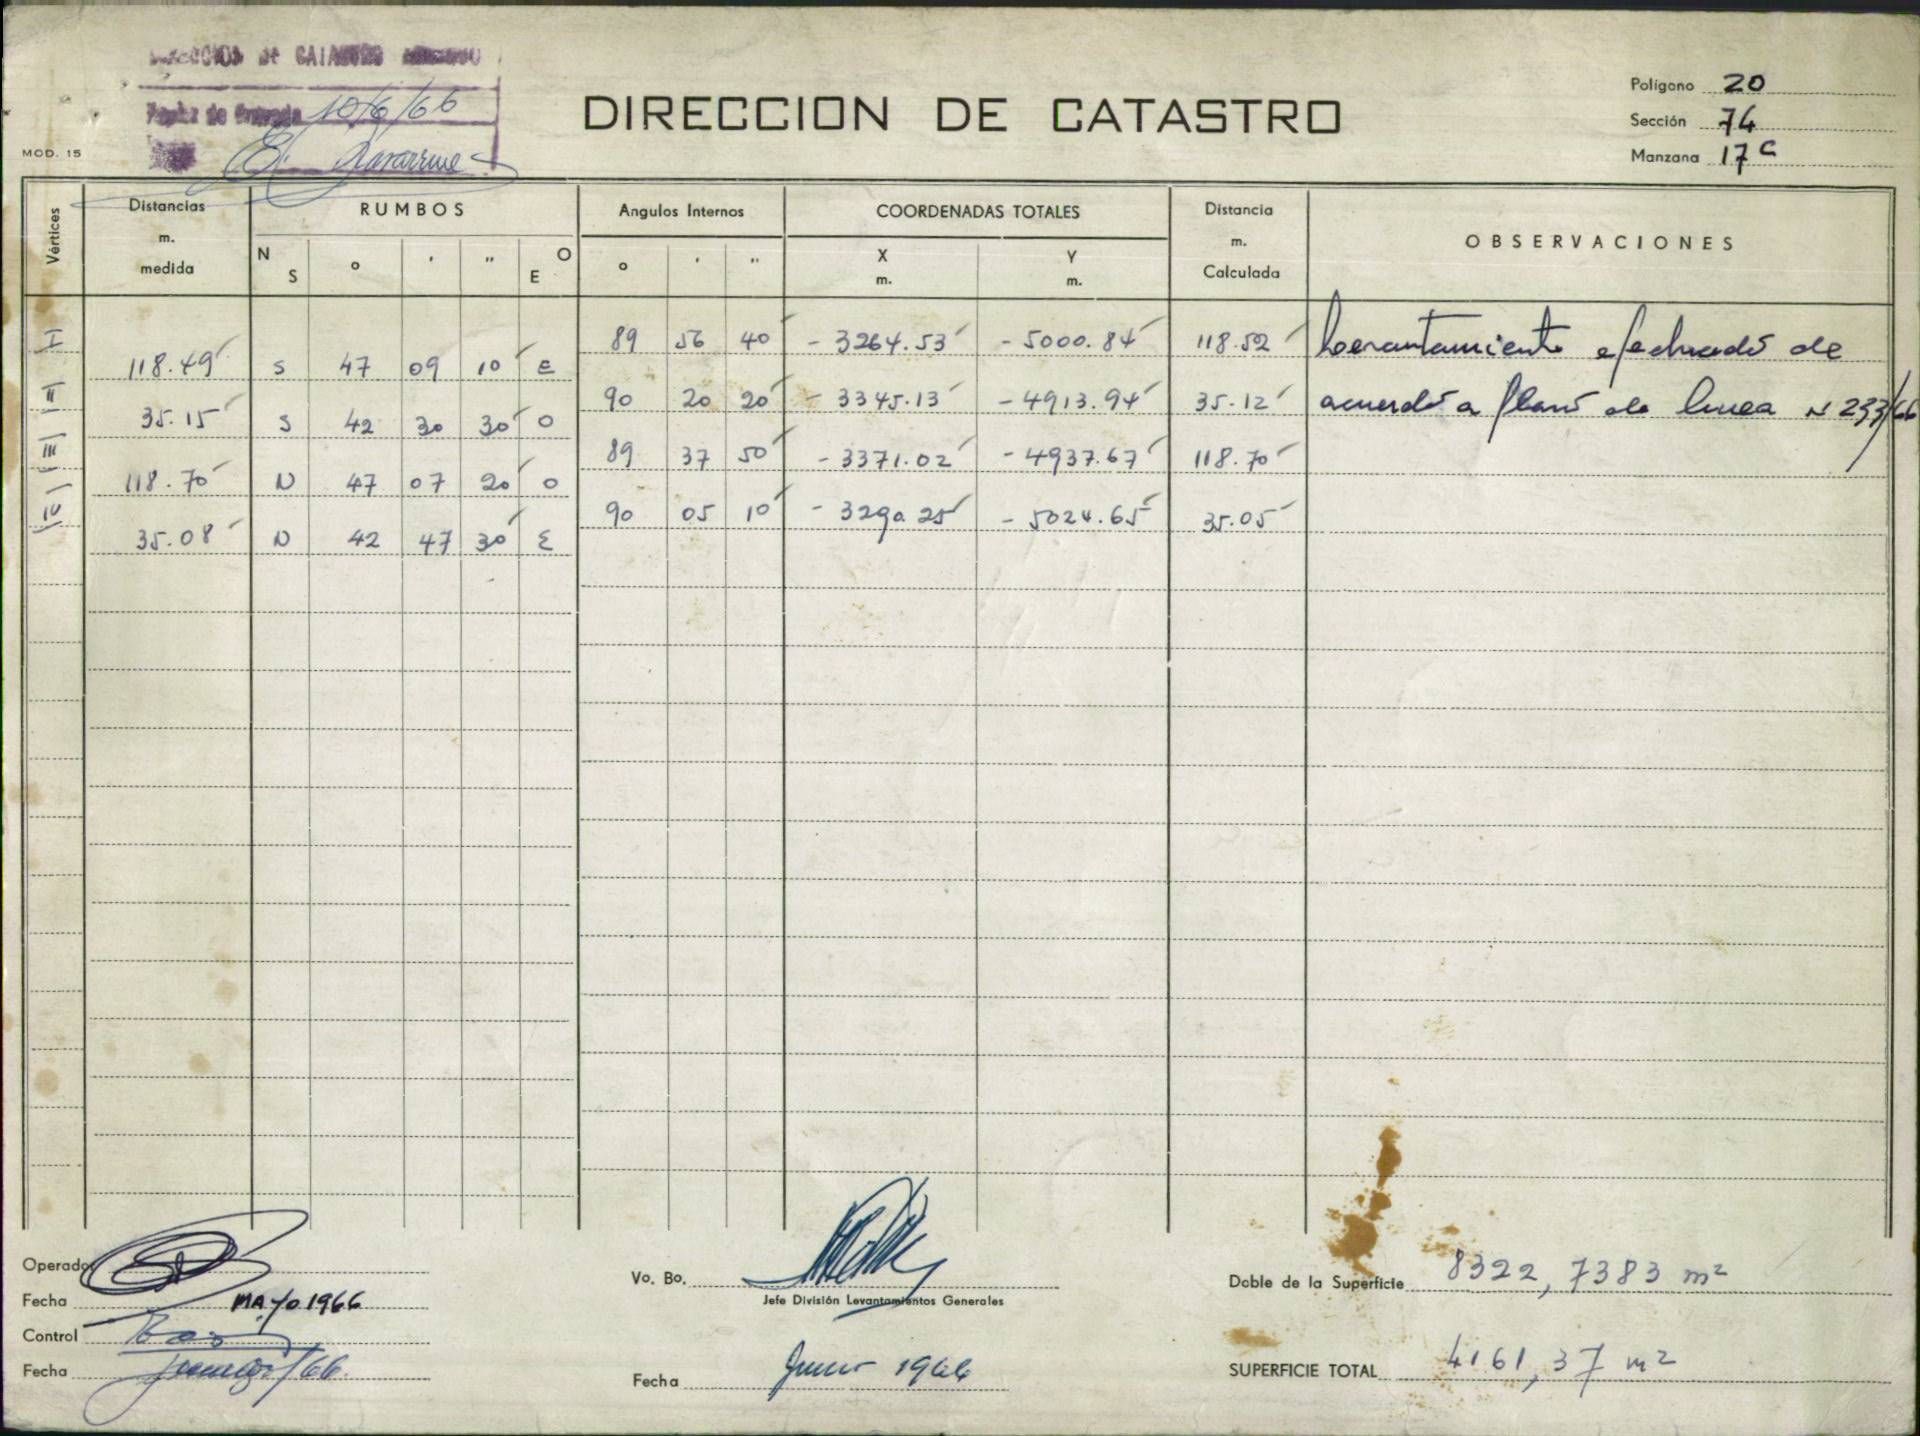 DIRECCION DE CATASTRO
10/6/66
MOD. 15
DIRECCION DE CATASTRO
Polígono 20
Sección 74
Manzana 17 C
Vértices
Distancias m. medida
RUMBOS
N S o ' " E O
Angulos Internos
o ' "
COORDENADAS TOTALES
X m. Y m.
Distancia m. Calculada
OBSERVACIONES
I 89 56 40 - 3264.53 - 5000.84 118.52 Levantamiento efectuado de
118.49 S 47 09 10 E
II 90 20 20 - 3345.13 - 4913.94 35.12 acuerdo a plano de linea N 233/66
35.15 S 42 30 30 O
III 89 37 50 - 3371.02 - 4937.67 118.70
118.70 N 47 07 20 O
IV 90 05 10 - 3290.25 - 5024.65 35.05
35.08 N 42 47 30 E
Operador
Fecha MAYO 1966
Control
Fecha /66
Vo. Bo.
Jefe División Levantamientos Generales
Fecha Junio 1966
Doble de la Superficie 8322,7383 m2
SUPERFICIE TOTAL 4161,37 m2